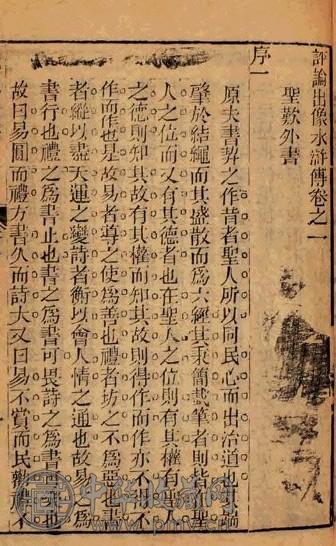 評論出像水滸傳卷之一
聖歎外書
序一
原夫書契之作昔者聖人所以同民心而出治道也
肇於結繩而其盛散而為六經其秉簡載筆者則皆在聖
人之位而又有其德者也在聖人之位則有其權有聖人
之德則知其故有其權而知其故則得作而作亦不得不
作而作也是故易者導之使為善也禮者坊之不為惡也書
者縱以盡天運之變詩者衡以會人情之通也故易之為
書行也禮之為書止也書之為書可畏詩之為書可樂也
故曰易圓而禮方書久而詩大又曰易不賞而民勸禮不
中华收藏网